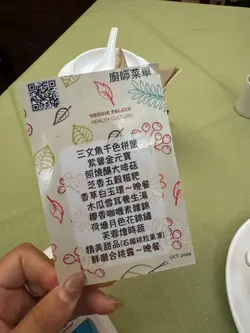 廚師菜單
VEGGIE PALACE
HEALTH CULTURE
三文魚千色拼盤
紫醬金元寶
照燒釀大啡菇
芝香五穀糍粑
香草白玉環～晚餐
木瓜雪耳養生湯
椰香咖喱素雜錦
荷塘月色花錦繡
芙蓉燴時蔬
精美甜品(石榴桃粒果凍)
鮮磨合桃露～晚餐
OCT 2024